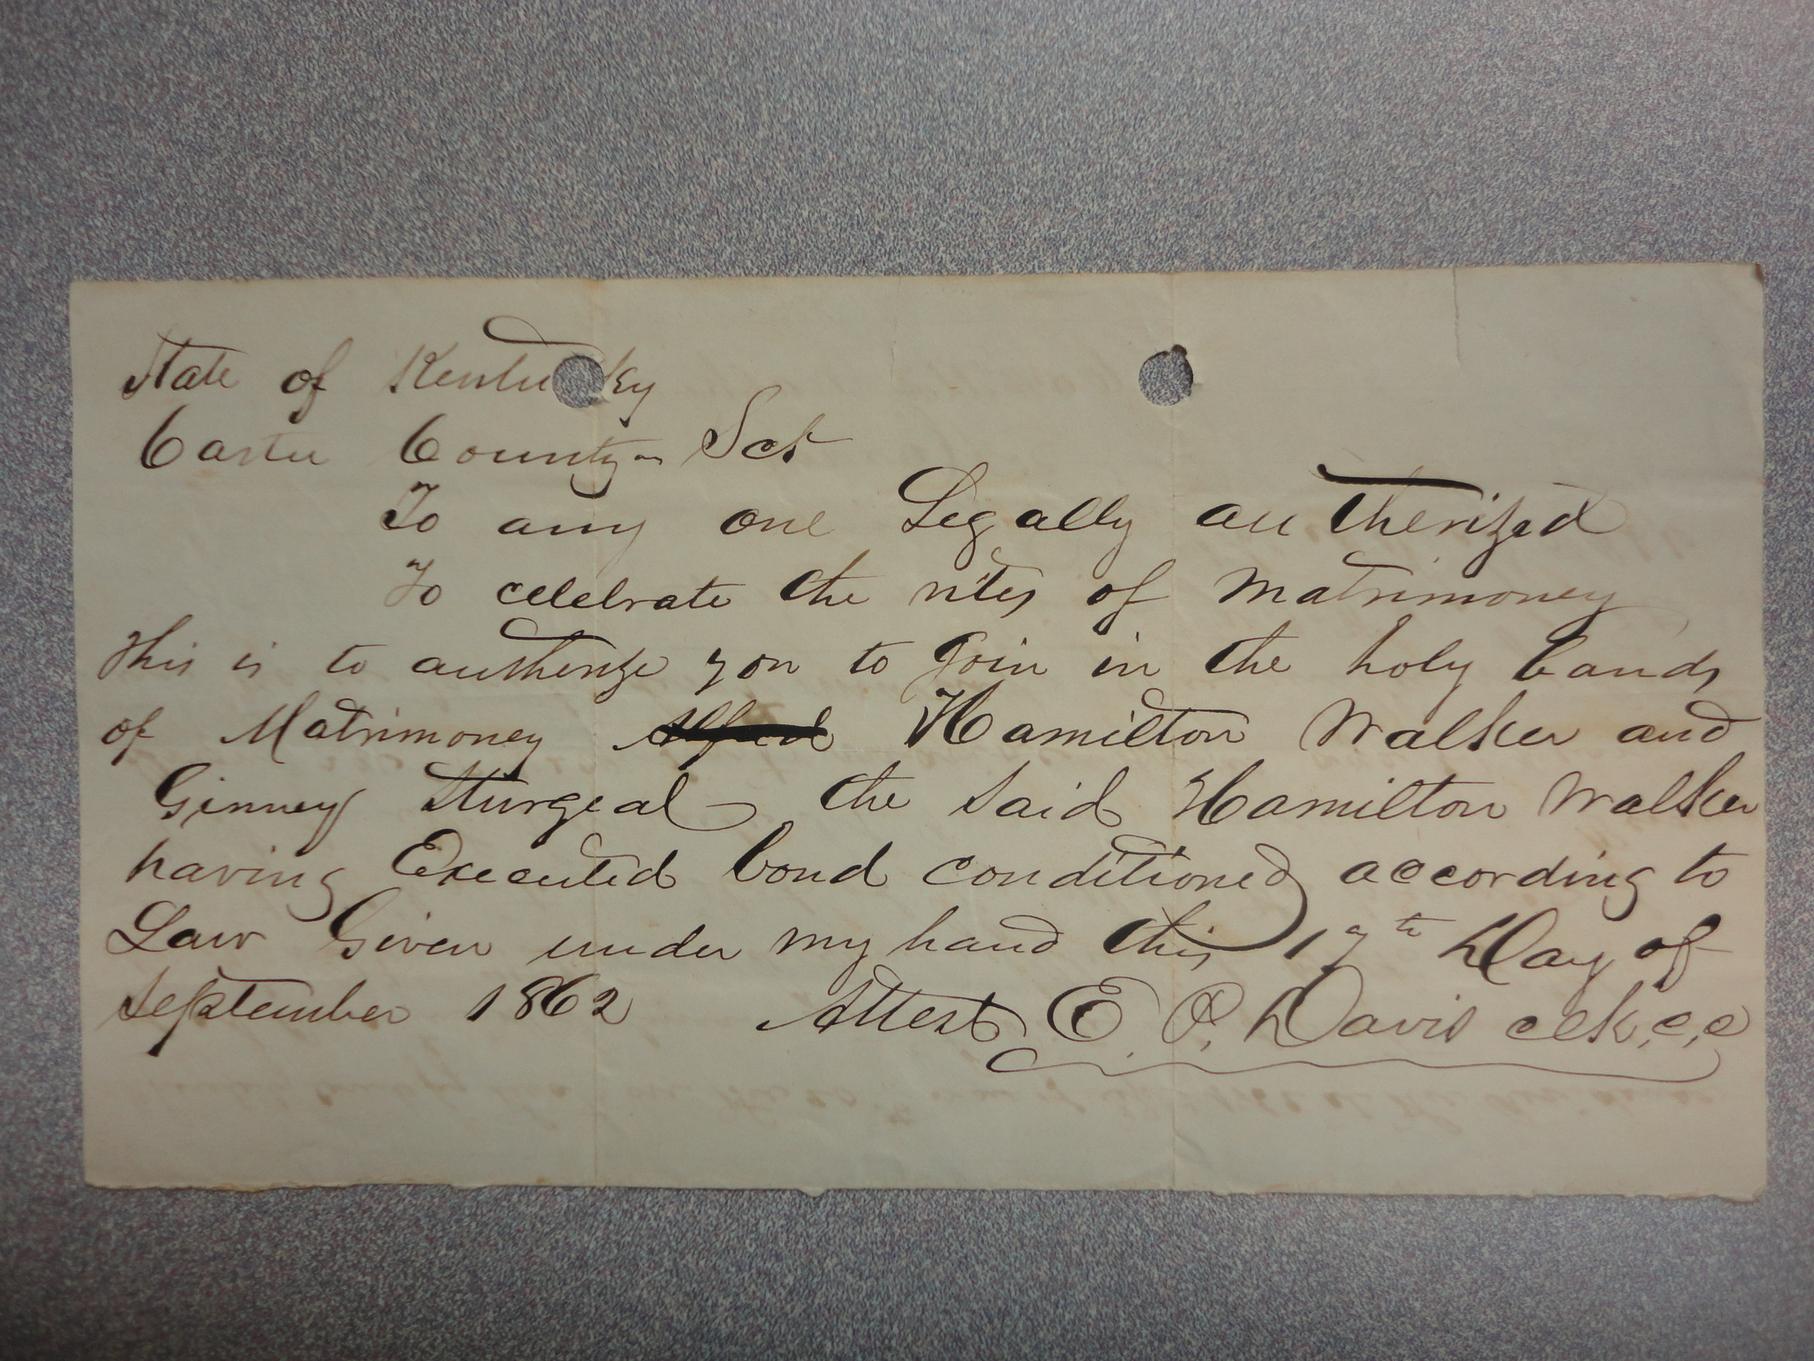 State of Kentucky
Carter County Sct
To any one Legally autherized
To celebrate the rites of Matrimoney
This is to autherize you to Join in the holy bands
of Matrimoney Alfred Hamilton Walker and
Ginney Sturgeal the said Hamilton Walker
having Executed bond conditioned according to
Law Given under my hand this 17th Day of
September 1862 Attest E. P. Davis clk, c, c